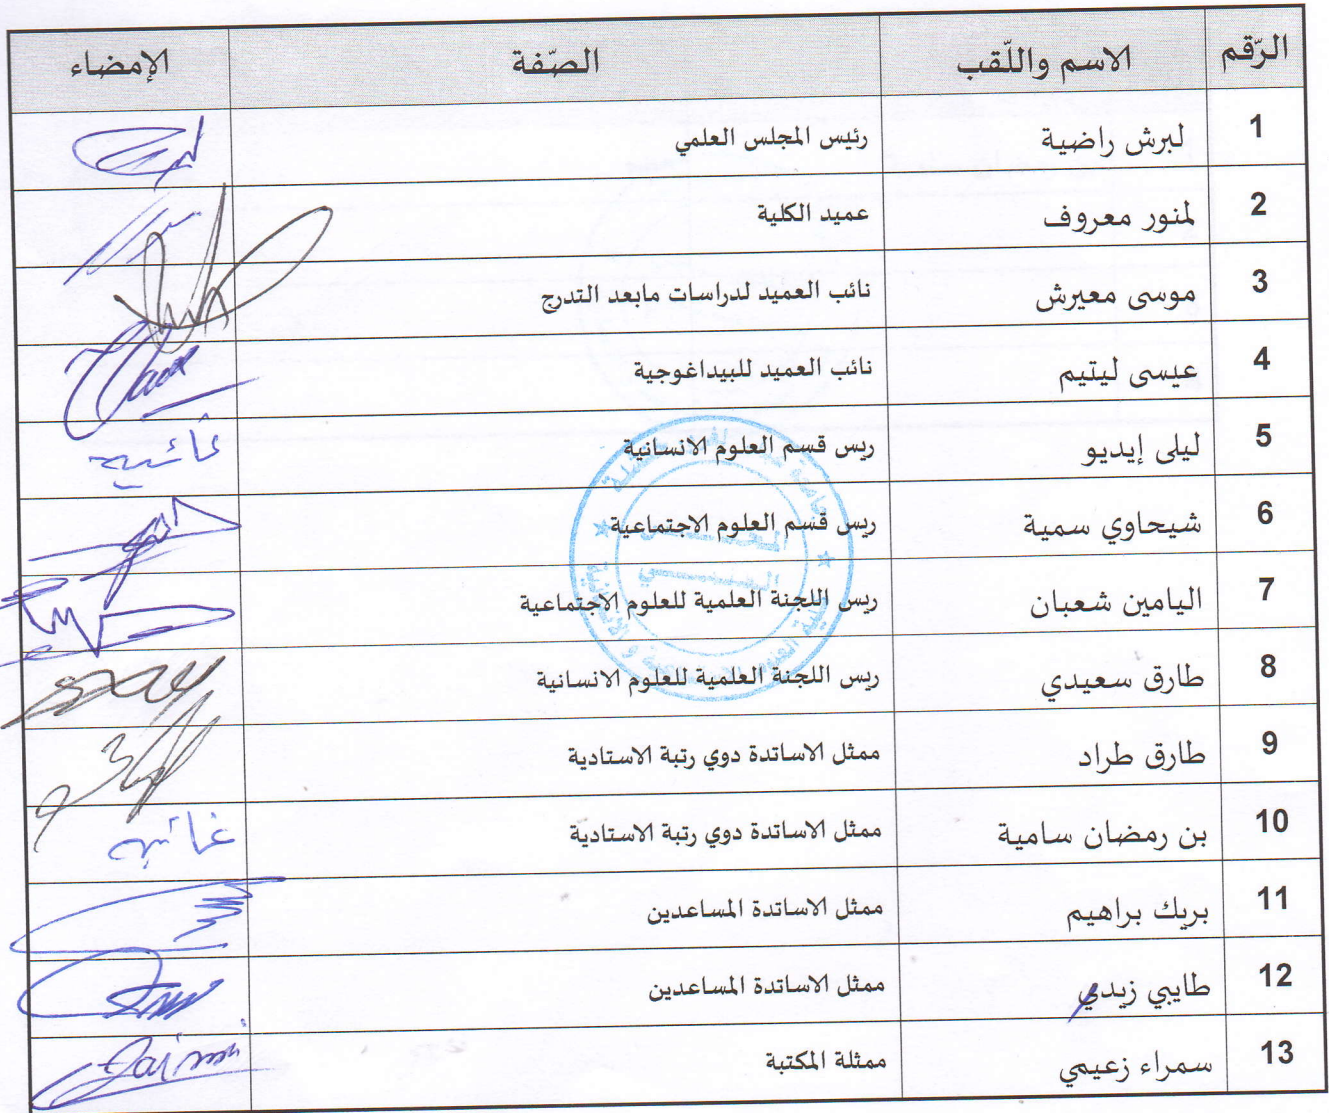 الرّقم الاسم واللّقب الصّفة الإمضاء
1 لبرش راضية رئيس المجلس العلمي
2 لمنور معروف عميد الكلية
3 موسى معيرش نائب العميد لدراسات مابعد التدرج
4 عيسى ليتيم نائب العميد للبيداغوجية
5 ليلى إيديو ريس قسم العلوم الانسانية غائبة
6 شيحاوي سمية ريس قسم العلوم الاجتماعية
7 اليامين شعبان ريس اللجنة العلمية للعلوم الاجتماعية
8 طارق سعيدي ريس اللجنة العلمية للعلوم الانسانية
9 طارق طراد ممثل الاساتدة دوي رتبة الاستادية
10 بن رمضان سامية ممثل الاساتدة دوي رتبة الاستادية غائبة
11 بريك براهيم ممثل الاساتدة المساعدين
12 طايبي زيدي ممثل الاساتدة المساعدين
13 سمراء زعيمي ممثلة المكتبة
المجلس
العلمي